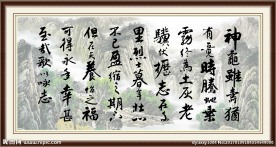 神龜雖壽猶
有竟時騰蛇乘
霧終為土灰老
驥伏櫪志在千
里烈士暮年壯心
不已盈縮之期不
但在天養怡之福
可得永年幸甚
至哉歌以詠志